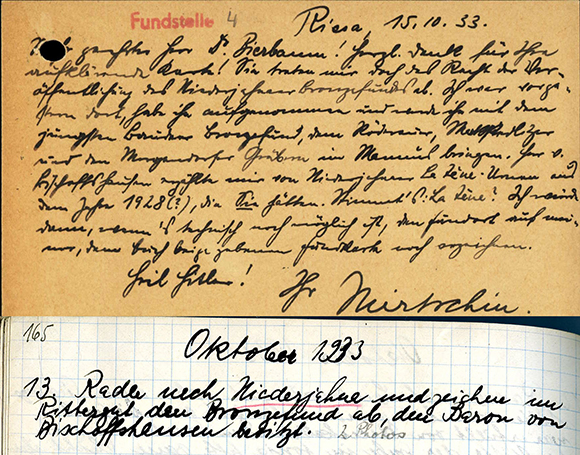 Fundstelle 4
Riesa, 15.10.33.
geehrter Herr Dr. Bierbaum! Herzl. Dank für Ihre
aufklärende Karte! Sie treten mir doch das Recht der Ver-
öffentlichung des Niederjahnaer Bronzefundes ab. Ich war vorge-
stern dort, habe ihn aufgenommen und werde ihn mit dem
jüngsten Bandaer Bronzefund, dem Röderauer,
und den Mergendorfer Gräbern im Manus bringen. Herr v.
Bischoffshausen erzählte mir von Niederjahnaer La Tène-Urnen aus
dem Jahre 1928(?), die Sie hätten. Stimmt's: La Tène? Ich würde
dann, wenn's technisch noch möglich ist, den Fundort auf mei-
ner, dem Buch beigegebenen Fundkarte noch verzeichnen.
Heil Hitler!
Ihr Mirtschin.
165
Oktober 1933
13. Radle nach Niederjahna und zeichne im
Rittergut den Bronzefund ab, den Baron von
Bischoffshausen besitzt. 2 Photos